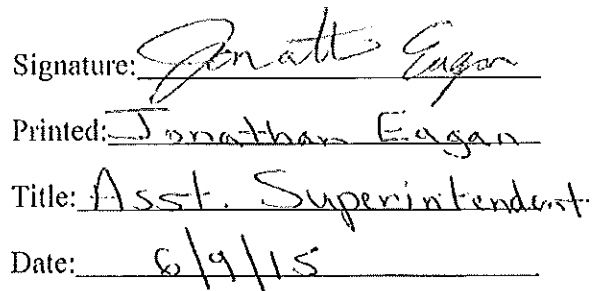 Signature: Jonath Eagan
Printed: Jonathan Eagan
Title: Asst. Superintendent
Date: 6/9/15